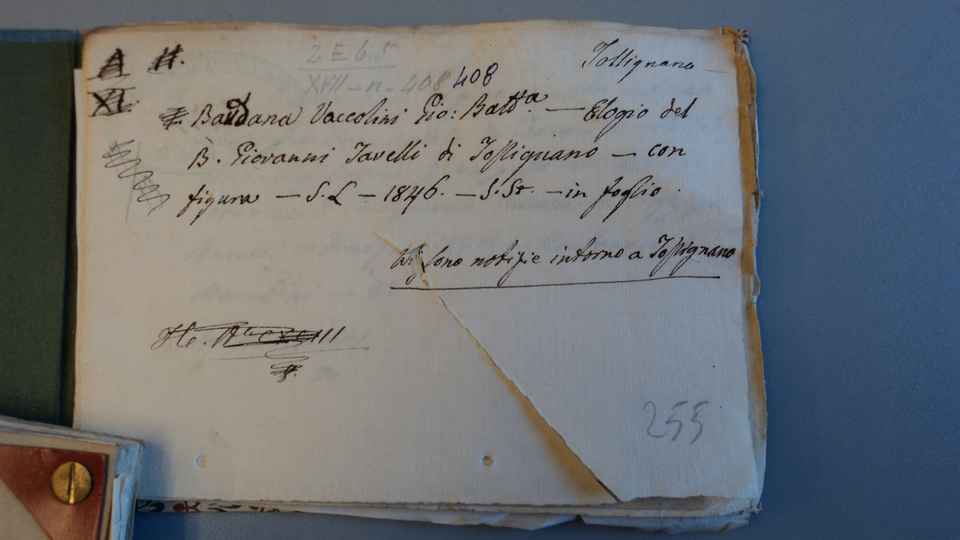 A H.
2 E 6. 5
XVII - n - 408 408
Tossignano
XI
Baldana Vaccolini Gio: Batt.a — Elogio del
B. Giovanni Tavelli di Tossignano — con
figura — S. L — 1846. — S. St. — in foglio.
Vi sono notizie intorno a Tossignano
255